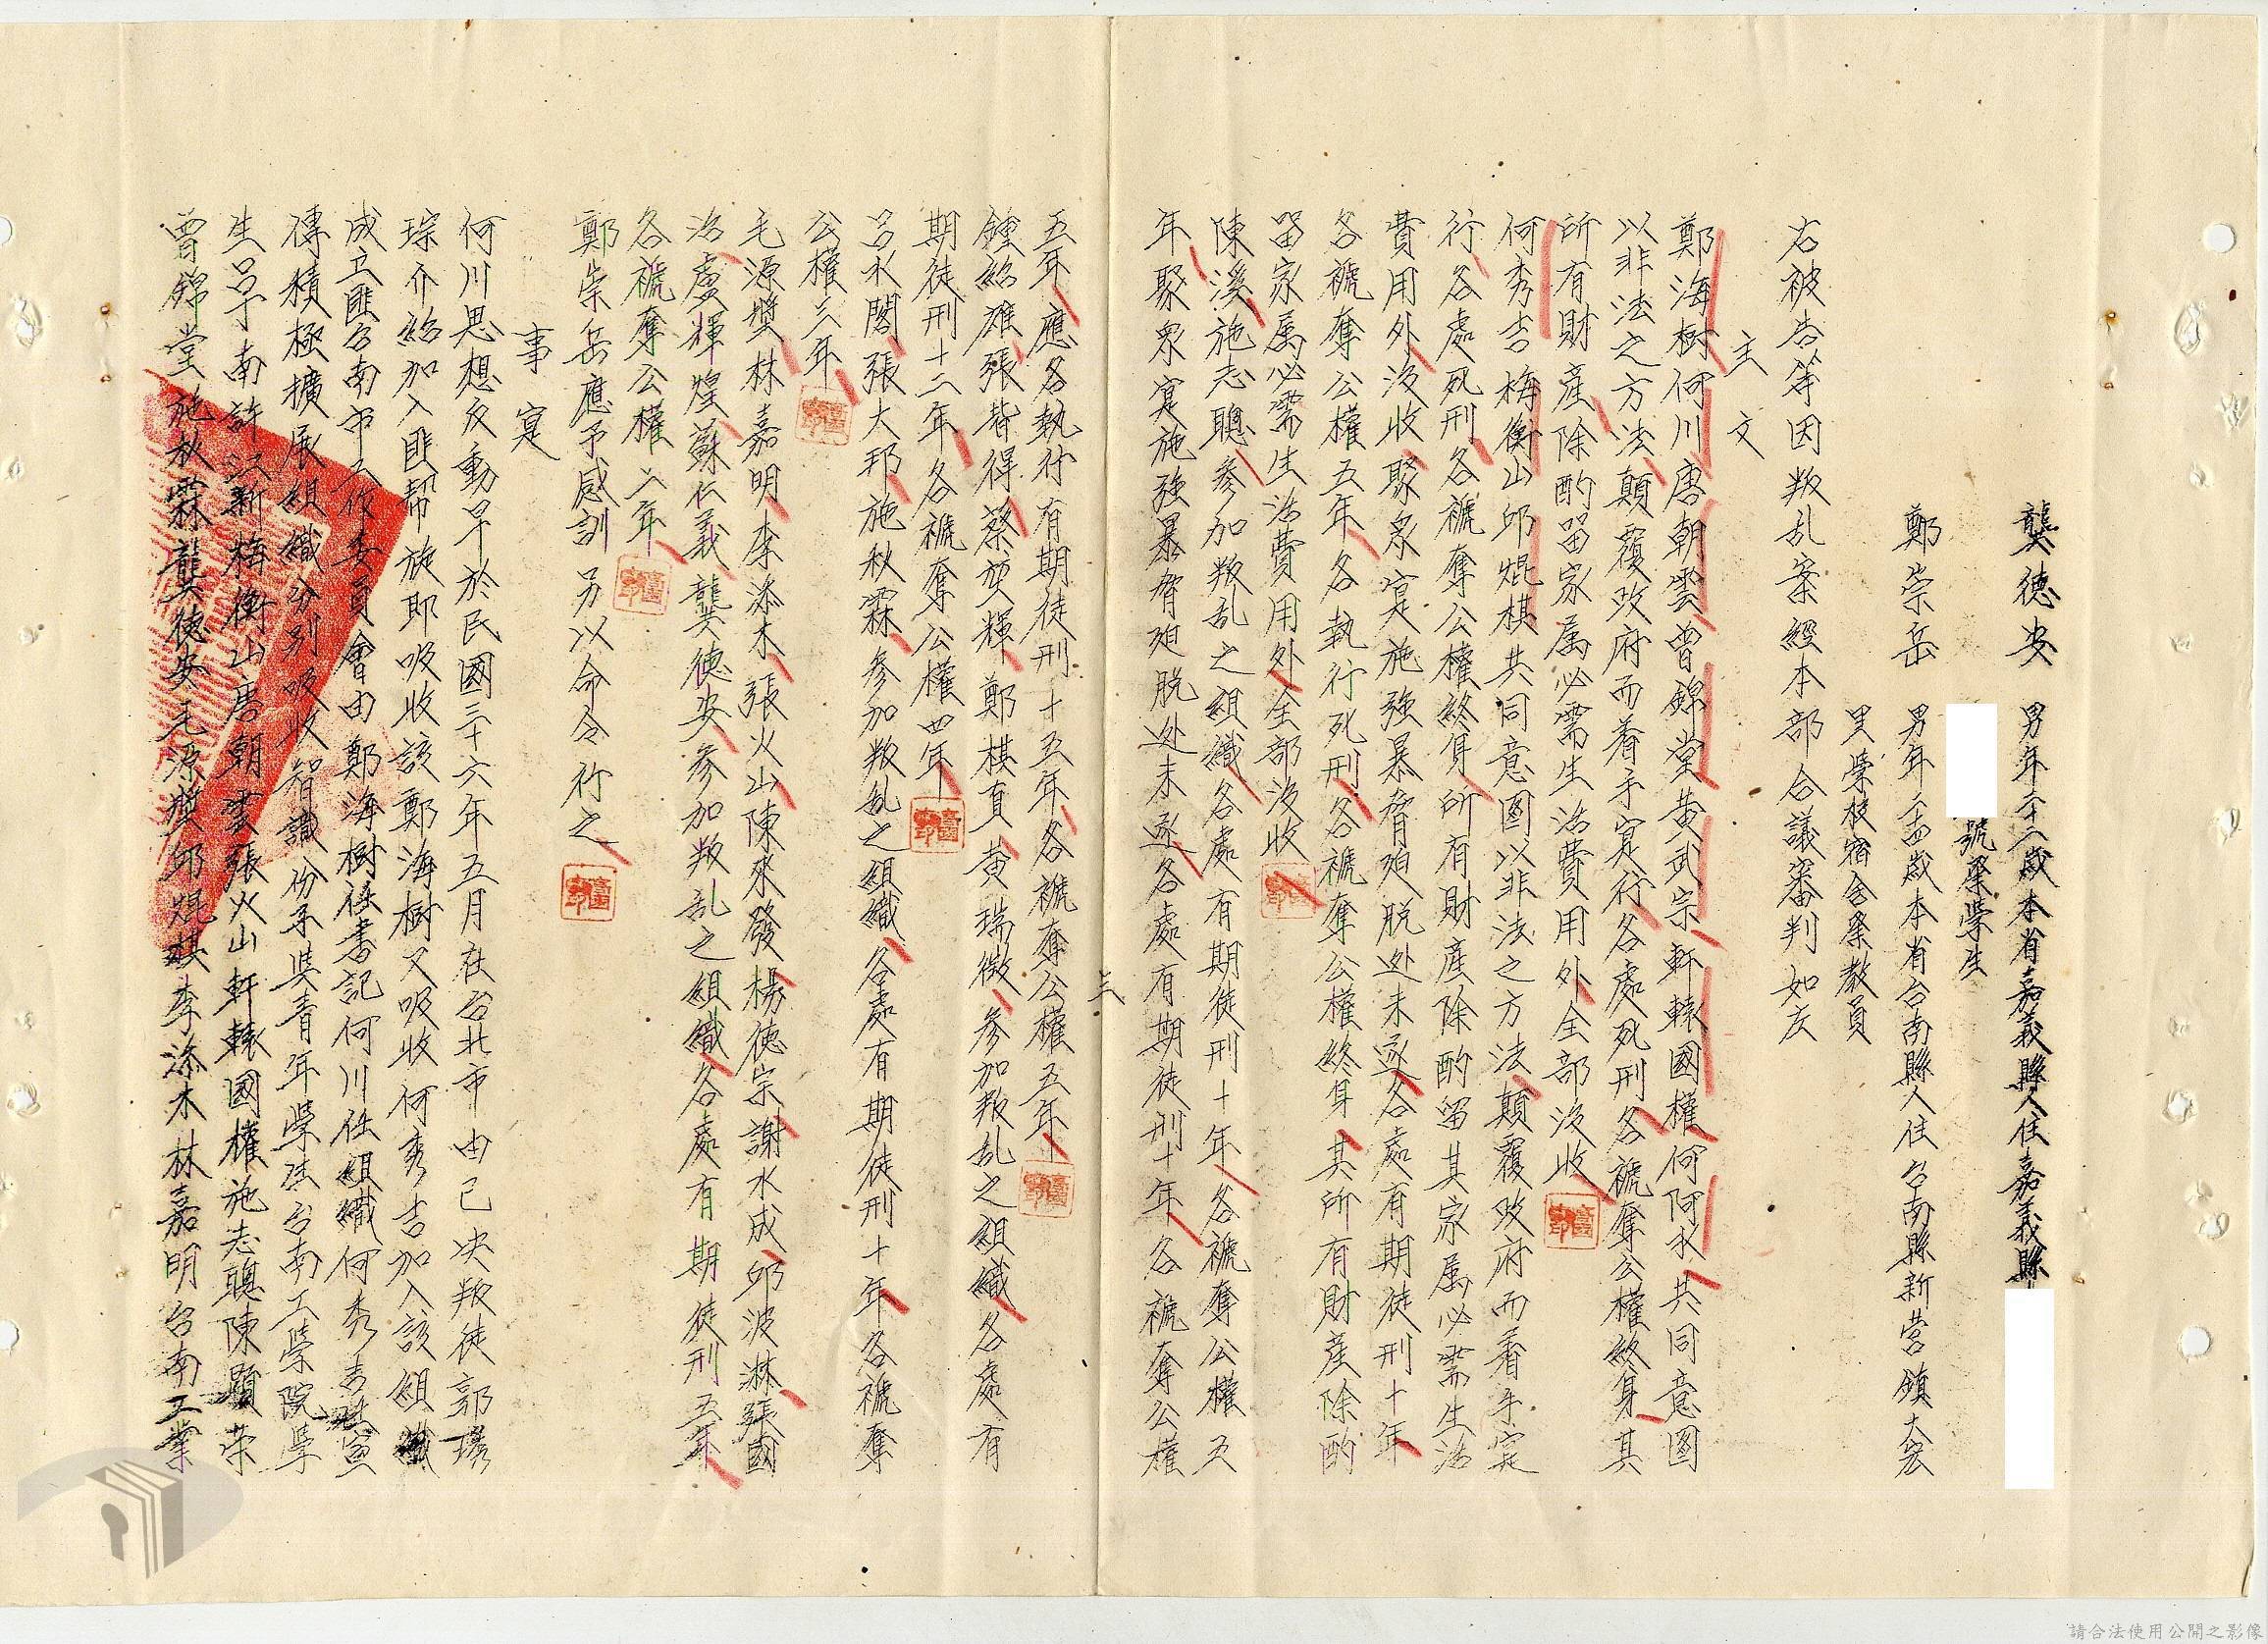 龔德安　男年二十二歲本省嘉義縣人住嘉義縣
號業學生
鄭崇岳　男年二十四歲本省台南縣人住台南縣新营鎮大宏
里學校宿舍業教員
右被告等因叛乱案經本部合議審判如左
主文
鄭海樹何川唐朝雲曾錦堂黄武宗軒轅國權何阿水共同意圖
以非法之方法顛覆政府而着手实行各處死刑各褫奪公權終身其
所有財產除酌留家属必需生活費用外全部沒收
何秀吉梅衡山邱焜棋共同意圖以非法之方法顛覆政府而着手实
行各處死刑各褫奪公權終身所有財產除酌留其家属必需生活
費用外沒收聚眾实施強暴脅廹脱逃未遂各處有期徒刑十年
各褫奪公權五年各執行死刑各褫奪公權終身其所有財產除酌
留家属必需生活費用外全部沒收
陳溪施志聰參加叛乱之組織各處有期徒刑十年各褫奪公權五
年聚眾实施強暴脅廹脱逃未遂各處有期徒刑十年各褫奪公權
三
五年應各執行有期徒刑十五年各褫奪公權五年
鍾紹雄張皆得蔡奕輝鄭棋頁黄瑞徵參加叛乱之組織各處有
期徒刑十二年各褫奪公權四年
呂水閣張大邦施秋霖參加叛乱之組織各處有期徒刑十年各褫奪
公權三年
毛源奬林嘉明李添木張火山陳來發楊德宗謝水成邱波淋張國
治盧輝煌蘇仁義龔德安參加叛乱之組織各處有期徒刑五年
各褫奪公權二年
鄭崇岳應予感訓另以命令行之
事实
何川思想反動早於民國三十六年五月在台北市由已决叛徒郭琇
琮介紹加入匪幫旋即吸收該鄭海樹又吸收何秀吉加入該組織
成立匪台南市工作委員會由鄭海樹任書記何川任組織何秀吉任宣
傳積極擴展組織分別吸收智識份子與青年學生台南工學院學
生呂子南許江新梅衡山唐朝雲張火山軒轅國權施志聰陳顯榮
曾錦堂施秋霖龔德安毛源奬邱焜棋李添木林嘉明台南工業
請合法使用公開之影像